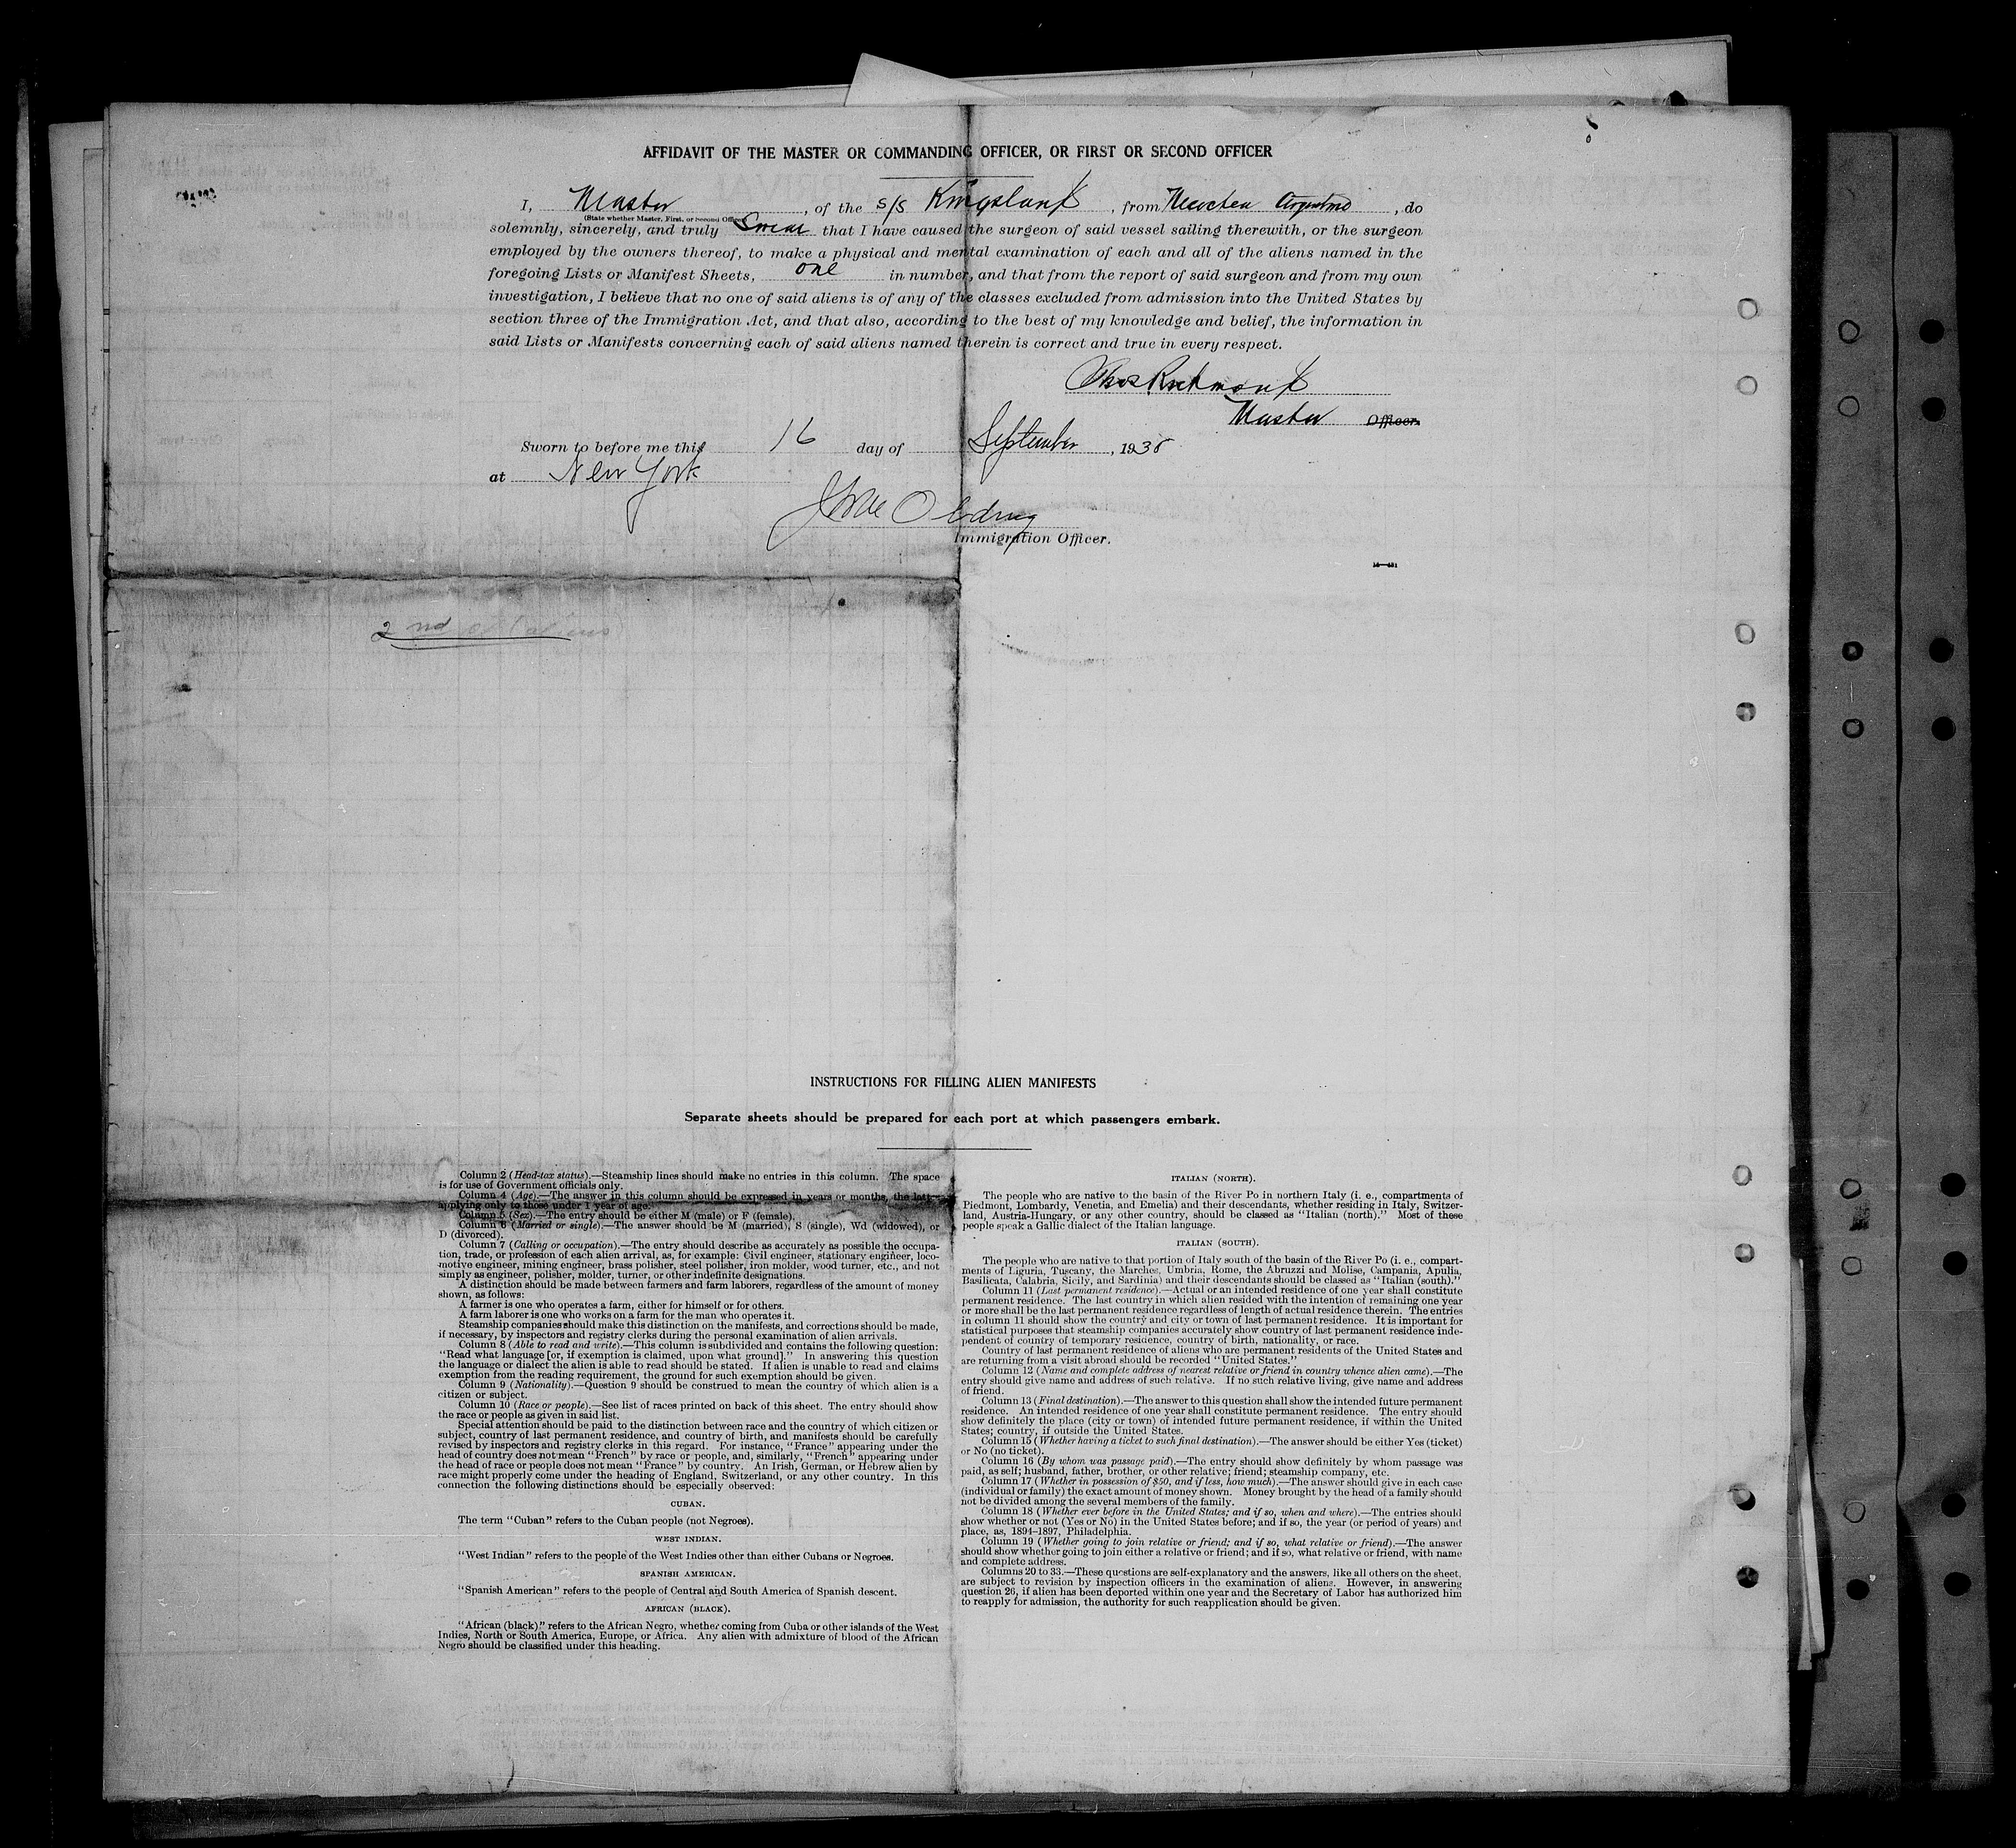 AFFIDAVIT OF THE MASTER OR COMMANDING OFFICER, OR FIRST OR SECOND OFFICER
I, Master, of the s/s Kingsland, from Argentine, do
(State whether Master, First, or Second Officer)
solemnly, sincerely, and truly Swear that I have caused the surgeon of said vessel sailing therewith, or the surgeon
employed by the owners thereof, to make a physical and mental examination of each and all of the aliens named in the
foregoing Lists or Manifest Sheets, one in number, and that from the report of said surgeon and from my own
investigation, I believe that no one of said aliens is of any of the classes excluded from admission into the United States by
section three of the Immigration Act, and that also, according to the best of my knowledge and belief, the information in
said Lists or Manifests concerning each of said aliens named therein is correct and true in every respect.
Master Officer.
Sworn to before me this 16 day of September, 193
at New York
Immigration Officer.
2nd
INSTRUCTIONS FOR FILLING ALIEN MANIFESTS
Separate sheets should be prepared for each port at which passengers embark.
Column 2 (Head-tax status).—Steamship lines should make no entries in this column. The space
is for use of Government officials only.
Column 4 (Age).—The answer in this column should be expressed in years or months, the latter
applying only to those under 1 year of age.
Column 5 (Sex).—The entry should be either M (male) or F (female).
Column 6 (Married or single).—The answer should be M (married), S (single), Wd (widowed), or
D (divorced).
Column 7 (Calling or occupation).—The entry should describe as accurately as possible the occupa-
tion, trade, or profession of each alien arrival, as, for example: Civil engineer, stationary engineer, loco-
motive engineer, mining engineer, brass polisher, steel polisher, iron molder, wood turner, etc., and not
simply as engineer, polisher, molder, turner, or other indefinite designations.
A distinction should be made between farmers and farm laborers, regardless of the amount of money
shown, as follows:
A farmer is one who operates a farm, either for himself or for others.
A farm laborer is one who works on a farm for the man who operates it.
Steamship companies should make this distinction on the manifests, and corrections should be made,
if necessary, by inspectors and registry clerks during the personal examination of alien arrivals.
Column 8 (Able to read and write).—This column is subdivided and contains the following question:
"Read what language [or, if exemption is claimed, upon what ground]." In answering this question
the language or dialect the alien is able to read should be stated. If alien is unable to read and claims
exemption from the reading requirement, the ground for such exemption should be given.
Column 9 (Nationality).—Question 9 should be construed to mean the country of which alien is a
citizen or subject.
Column 10 (Race or people).—See list of races printed on back of this sheet. The entry should show
the race or people as given in said list.
Special attention should be paid to the distinction between race and the country of which citizen or
subject, country of last permanent residence, and country of birth, and manifests should be carefully
revised by inspectors and registry clerks in this regard. For instance, "France" appearing under the
head of country does not mean "French" by race or people, and, similarly, "French" appearing under
the head of race or people does not mean "France" by country. An Irish, German, or Hebrew alien by
race might properly come under the heading of England, Switzerland, or any other country. In this
connection the following distinctions should be especially observed:
CUBAN.
The term "Cuban" refers to the Cuban people (not Negroes).
WEST INDIAN.
"West Indian" refers to the people of the West Indies other than either Cubans or Negroes.
SPANISH AMERICAN.
"Spanish American" refers to the people of Central and South America of Spanish descent.
AFRICAN (BLACK).
"African (black)" refers to the African Negro, whether coming from Cuba or other islands of the West
Indies, North or South America, Europe, or Africa. Any alien with admixture of blood of the African
Negro should be classified under this heading.
ITALIAN (NORTH).
The people who are native to the basin of the River Po in northern Italy (i. e., compartments of
Piedmont, Lombardy, Venetia, and Emelia) and their descendants, whether residing in Italy, Switzer-
land, Austria-Hungary, or any other country, should be classed as "Italian (north)." Most of these
people speak a Gallic dialect of the Italian language.
ITALIAN (SOUTH).
The people who are native to that portion of Italy south of the basin of the River Po (i. e., compart-
ments of Liguria, Tuscany, the Marches, Umbria, Rome, the Abruzzi and Molise, Campania, Apulia,
Basilicata, Calabria, Sicily, and Sardinia) and their descendants should be classed as "Italian (south)."
Column 11 (Last permanent residence).—Actual or an intended residence of one year shall constitute
permanent residence. The last country in which alien resided with the intention of remaining one year
or more shall be the last permanent residence regardless of length of actual residence therein. The entries
in column 11 should show the country and city or town of last permanent residence. It is important for
statistical purposes that steamship companies accurately show country of last permanent residence inde-
pendent of country of temporary residence, country of birth, nationality, or race.
Country of last permanent residence of aliens who are permanent residents of the United States and
are returning from a visit abroad should be recorded "United States."
Column 12 (Name and complete address of nearest relative or friend in country whence alien came).—The
entry should give name and address of such relative. If no such relative living, give name and address
of friend.
Column 13 (Final destination).—The answer to this question shall show the intended future permanent
residence. An intended residence of one year shall constitute permanent residence. The entry should
show definitely the place (city or town) of intended future permanent residence, if within the United
States; country, if outside the United States.
Column 15 (Whether having a ticket to such final destination).—The answer should be either Yes (ticket)
or No (no ticket).
Column 16 (By whom was passage paid).—The entry should show definitely by whom passage was
paid, as self; husband, father, brother, or other relative; friend; steamship company, etc.
Column 17 (Whether in possession of $50, and if less, how much).—The answer should give in each case
(individual or family) the exact amount of money shown. Money brought by the head of a family should
not be divided among the several members of the family.
Column 18 (Whether ever before in the United States; and if so, when and where).—The entries should
show whether or not (Yes or No) in the United States before; and if so, the year (or period of years) and
place, as, 1894-1897, Philadelphia.
Column 19 (Whether going to join relative or friend; and if so, what relative or friend).—The answer
should show whether going to join either a relative or friend; and if so, what relative or friend, with name
and complete address.
Columns 20 to 33.—These questions are self-explanatory and the answers, like all others on the sheet,
are subject to revision by inspection officers in the examination of aliens. However, in answering
question 26, if alien has been deported within one year and the Secretary of Labor has authorized him
to reapply for admission, the authority for such reapplication should be given.